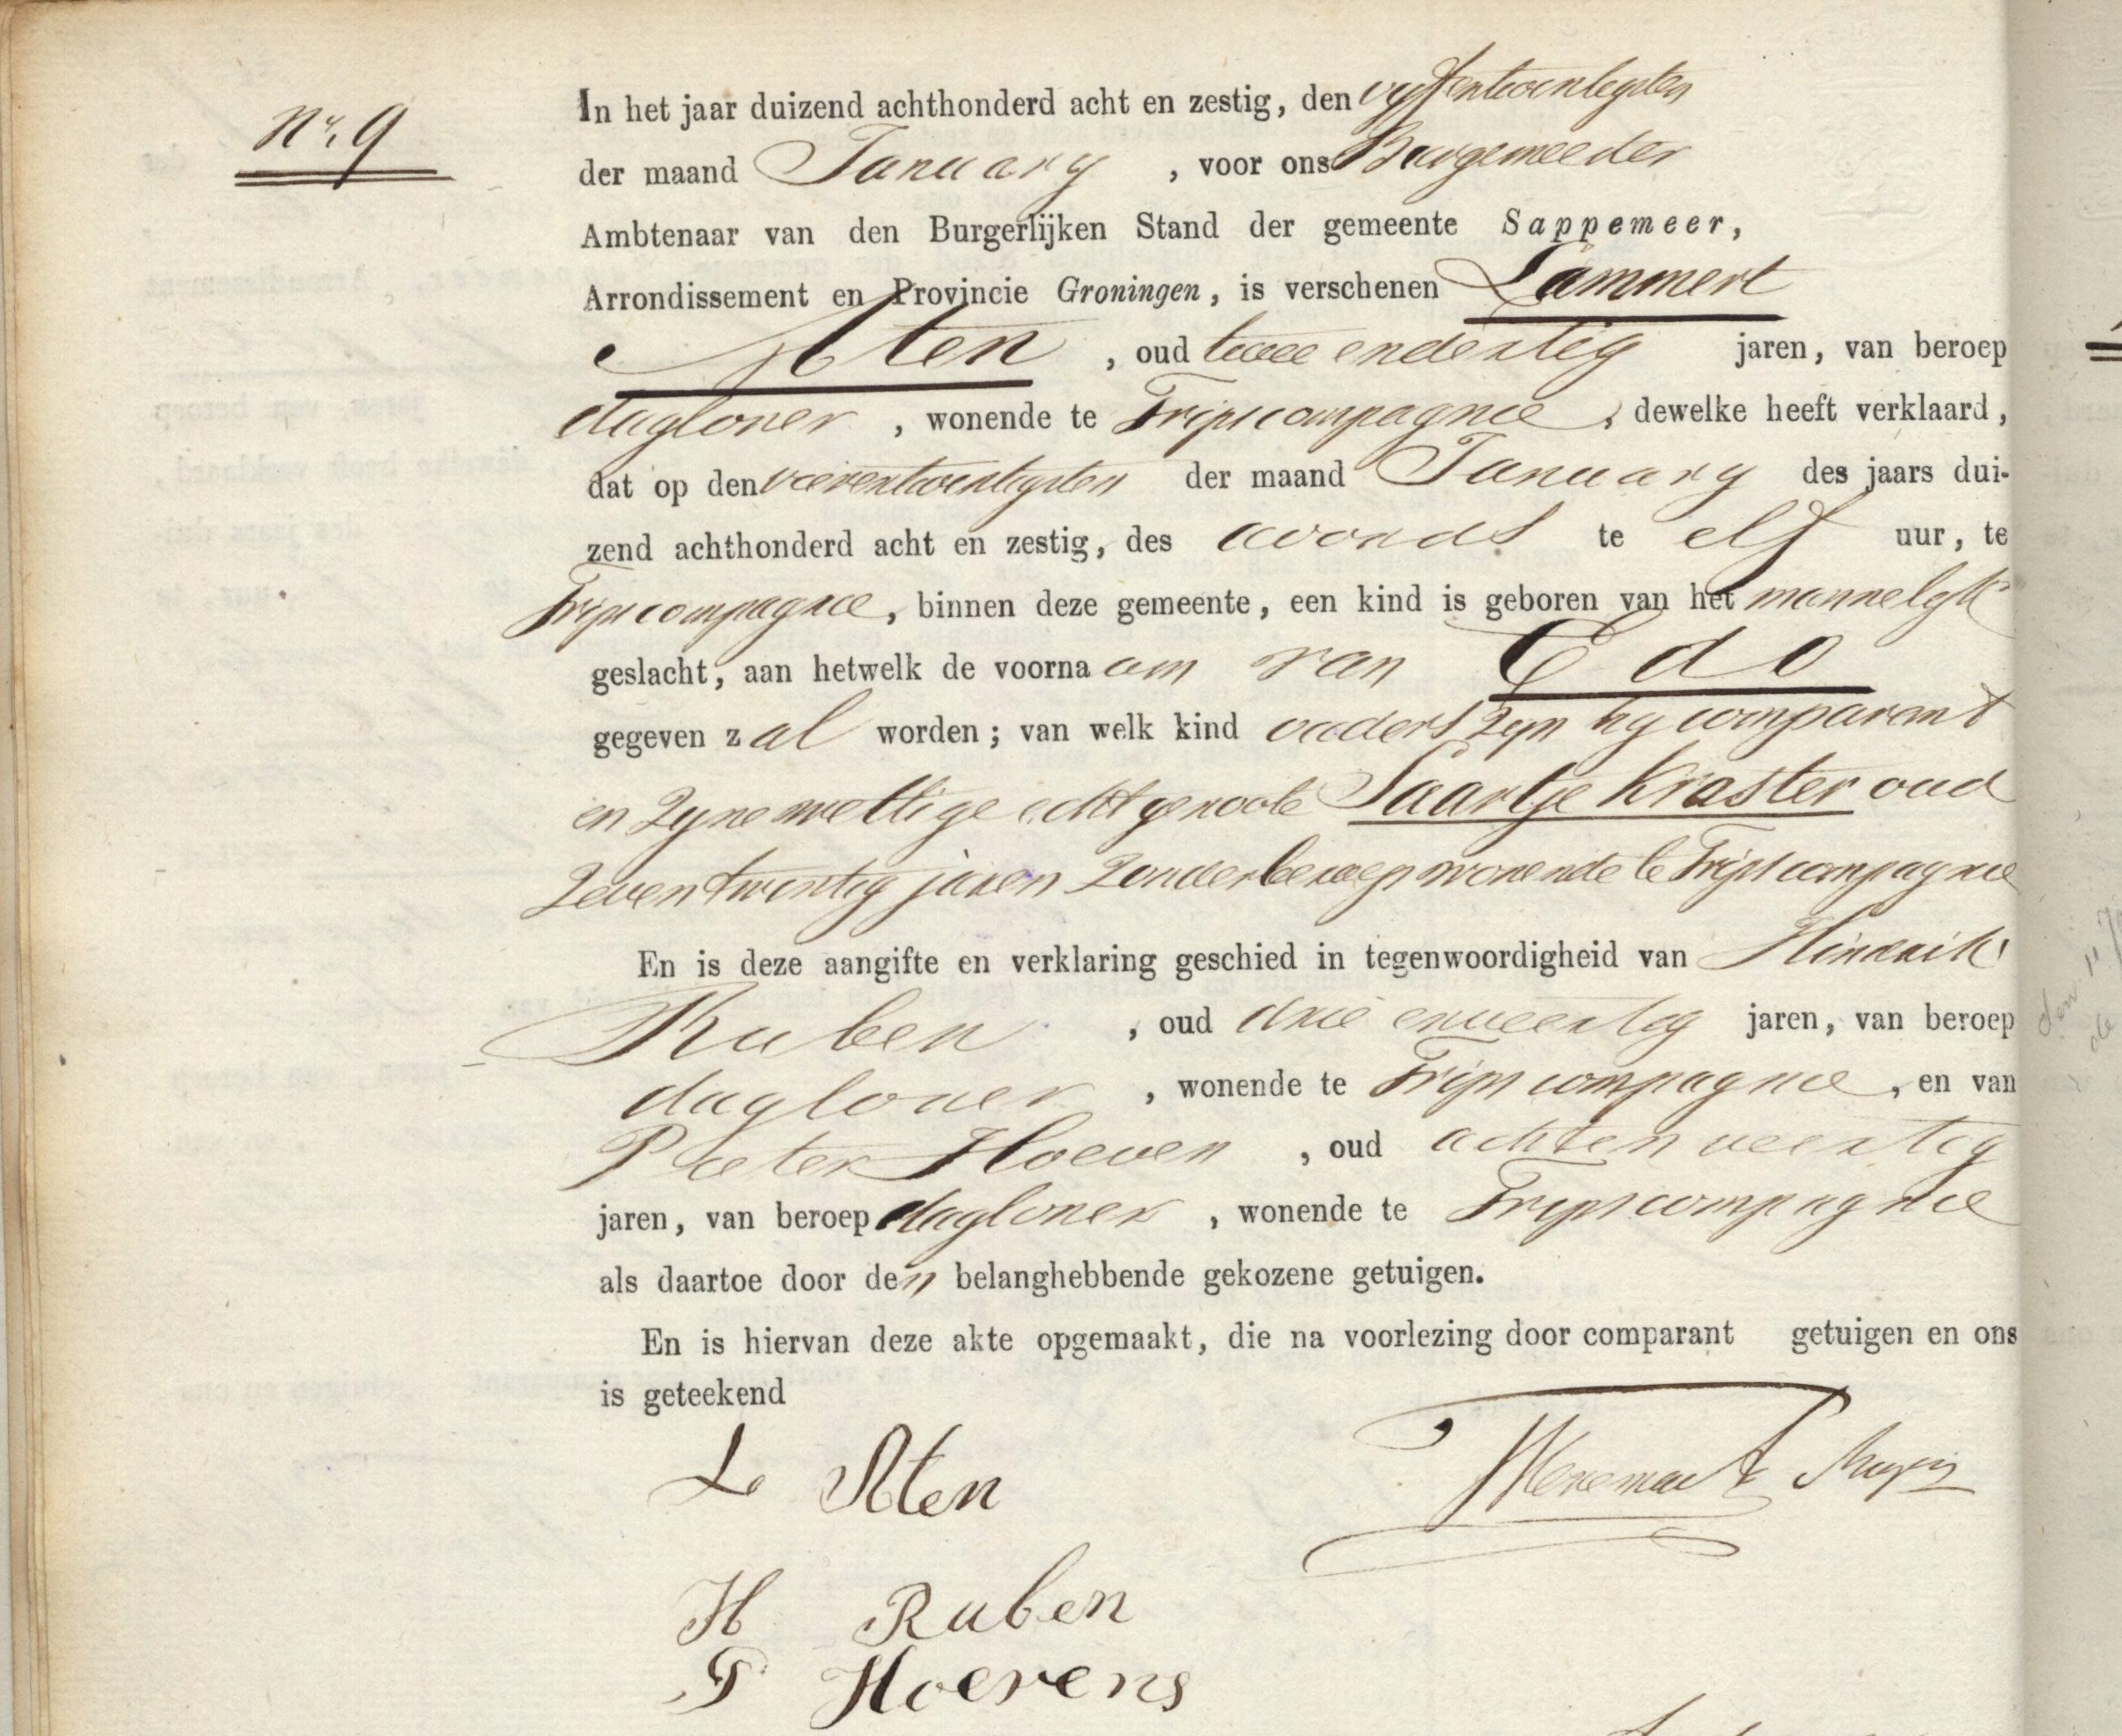 Nr. 9
In het jaar duizend achthonderd acht en zestig, den vyfentwentigsten
der maand January , voor ons Burgemeester
Ambtenaar van den Burgerlijken Stand der gemeente Sappemeer,
Arrondissement en Provincie Groningen, is verschenen Lammert
Aten , oud twee endertig jaren, van beroep
dagloner , wonende te Tripscompagnie , dewelke heeft verklaard,
dat op den vierentwentigsten der maand January des jaars dui-
zend achthonderd acht en zestig, des avonds te elf uur, te
Tripscompagnie, binnen deze gemeente, een kind is geboren van het mannelyk
geslacht, aan hetwelk de voorna am van Edo
gegeven zal worden; van welk kind ouders zyn hy comparant
en zyne wettige echtgenoote Saartje Kraster oud
zeventwintig jaren zonder beroep wonende te Tripscompagnie
En is deze aangifte en verklaring geschied in tegenwoordigheid van Hinderik
Ruben , oud drie enveertig jaren, van beroep
dagloner , wonende te Tripscompagnie , en van
Pieter Hoeven , oud achtenveertig
jaren, van beroep dagloner , wonende te Tripscompagnie
als daartoe door den belanghebbende gekozene getuigen.
En is hiervan deze akte opgemaakt, die na voorlezing door comparant getuigen en ons
is geteekend
L. Aten
H Ruben
P Hoevens